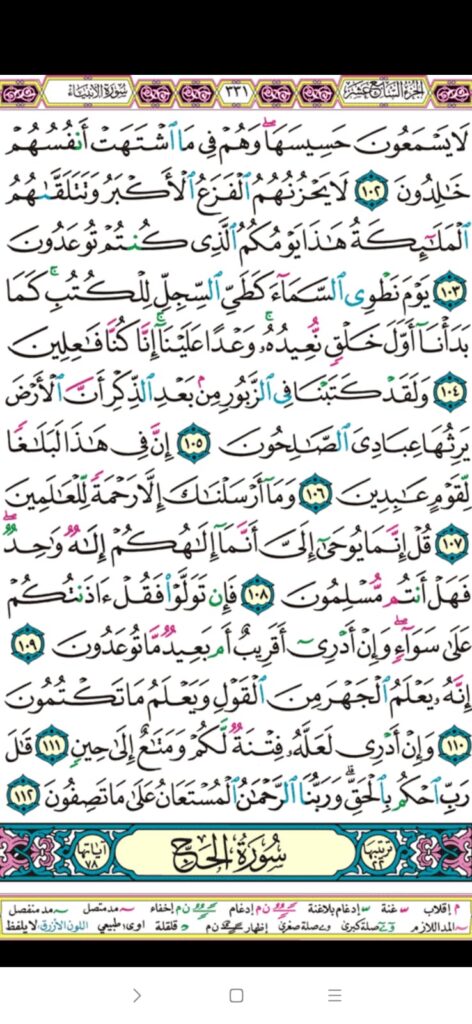 سورة الأنبياء ٣٣١ الجزء السابع عشر
لَا يَسۡمَعُونَ حَسِيسَهَاۖ وَهُمۡ فِي مَا ٱشۡتَهَتۡ أَنفُسُهُمۡ
خَٰلِدُونَ ١٠٢ لَا يَحۡزُنُهُمُ ٱلۡفَزَعُ ٱلۡأَكۡبَرُ وَتَتَلَقَّىٰهُمُ
ٱلۡمَلَٰٓئِكَةُ هَٰذَا يَوۡمُكُمُ ٱلَّذِي كُنتُمۡ تُوعَدُونَ
١٠٣ يَوۡمَ نَطۡوِي ٱلسَّمَآءَ كَطَيِّ ٱلسِّجِلِّ لِلۡكُتُبِۚ كَمَا
بَدَأۡنَآ أَوَّلَ خَلۡقٖ نُّعِيدُهُۥۚ وَعۡدًا عَلَيۡنَآۚ إِنَّا كُنَّا فَٰعِلِينَ
١٠٤ وَلَقَدۡ كَتَبۡنَا فِي ٱلزَّبُورِ مِنۢ بَعۡدِ ٱلذِّكۡرِ أَنَّ ٱلۡأَرۡضَ
يَرِثُهَا عِبَادِيَ ٱلصَّٰلِحُونَ ١٠٥ إِنَّ فِي هَٰذَا لَبَلَٰغٗا
لِّقَوۡمٍ عَٰبِدِينَ ١٠٦ وَمَآ أَرۡسَلۡنَٰكَ إِلَّا رَحۡمَةٗ لِّلۡعَٰلَمِينَ
١٠٧ قُلۡ إِنَّمَا يُوحَىٰٓ إِلَيَّ أَنَّمَآ إِلَٰهُكُمۡ إِلَٰهٞ وَٰحِدٞۖ
فَهَلۡ أَنتُم مُّسۡلِمُونَ ١٠٨ فَإِن تَوَلَّوۡاْ فَقُلۡ ءَاذَنتُكُمۡ
عَلَىٰ سَوَآءٖۖ وَإِنۡ أَدۡرِيٓ أَقَرِيبٌ أَم بَعِيدٞ مَّا تُوعَدُونَ ١٠٩
إِنَّهُۥ يَعۡلَمُ ٱلۡجَهۡرَ مِنَ ٱلۡقَوۡلِ وَيَعۡلَمُ مَا تَكۡتُمُونَ
١١٠ وَإِنۡ أَدۡرِي لَعَلَّهُۥ فِتۡنَةٞ لَّكُمۡ وَمَتَٰعٌ إِلَىٰ حِينٖ ١١١ قَٰلَ
رَبِّ ٱحۡكُم بِٱلۡحَقِّۗ وَرَبُّنَا ٱلرَّحۡمَٰنُ ٱلۡمُسۡتَعَانُ عَلَىٰ مَا تَصِفُونَ ١١٢
ترتيبها ٢٢ سُورَةُ الحَجِّ آياتها ٧٨
م إقلاب غنة إدغام بلاغنة ن م إدغام ن م إخفاء مد متصل مد منفصل
المد اللازم صلة كبرى صلة صغرى إظهار ن م قلقلة اوى: طبيعي اللون الأزرق: لا يلفظ